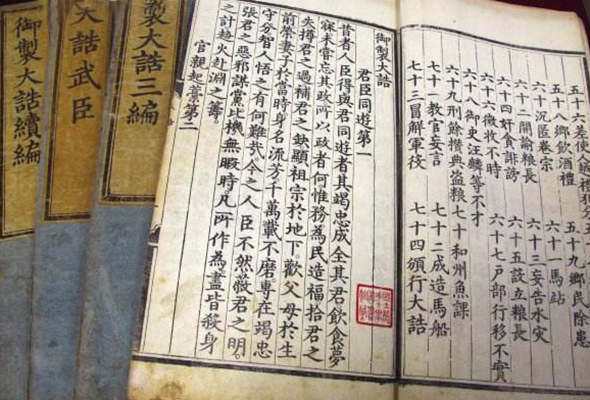 五十六差使人越禮犯分
五十八鄉飲酒禮 五十九鄉民除患
六十沉匿卷宗 六十一馬站
六十二開諭糧長 六十三妄告水災
六十四奸貪誹謗 六十五設立糧長
六十六徵收不時 六十七戶部行移不實
六十八御史汪麟等不才
六十九刑餘攢典盜糧 七十和州魚課
七十一教官妄言 七十二成造馬船
七十三冒解軍役 七十四頒行大誥
御製大誥
君臣同遊第一
昔者人臣得與君同遊者其竭忠成全其君飲食夢
寐未嘗忘其政所以政者何惟務為民造福拾君之
失撙君之過補君之缺顯祖宗於地下歡父母於生
前榮妻子於當時身名流芳千萬載不磨專在竭忠
守分智人悟之有何難哉今之人臣不然蔽君之明
張君之惡邪謀黨比機無暇時凡所作為盡皆殺身
之計趨火赴淵之籌
官親起藁第二
製大誥三編
大誥武臣
御製大誥續編